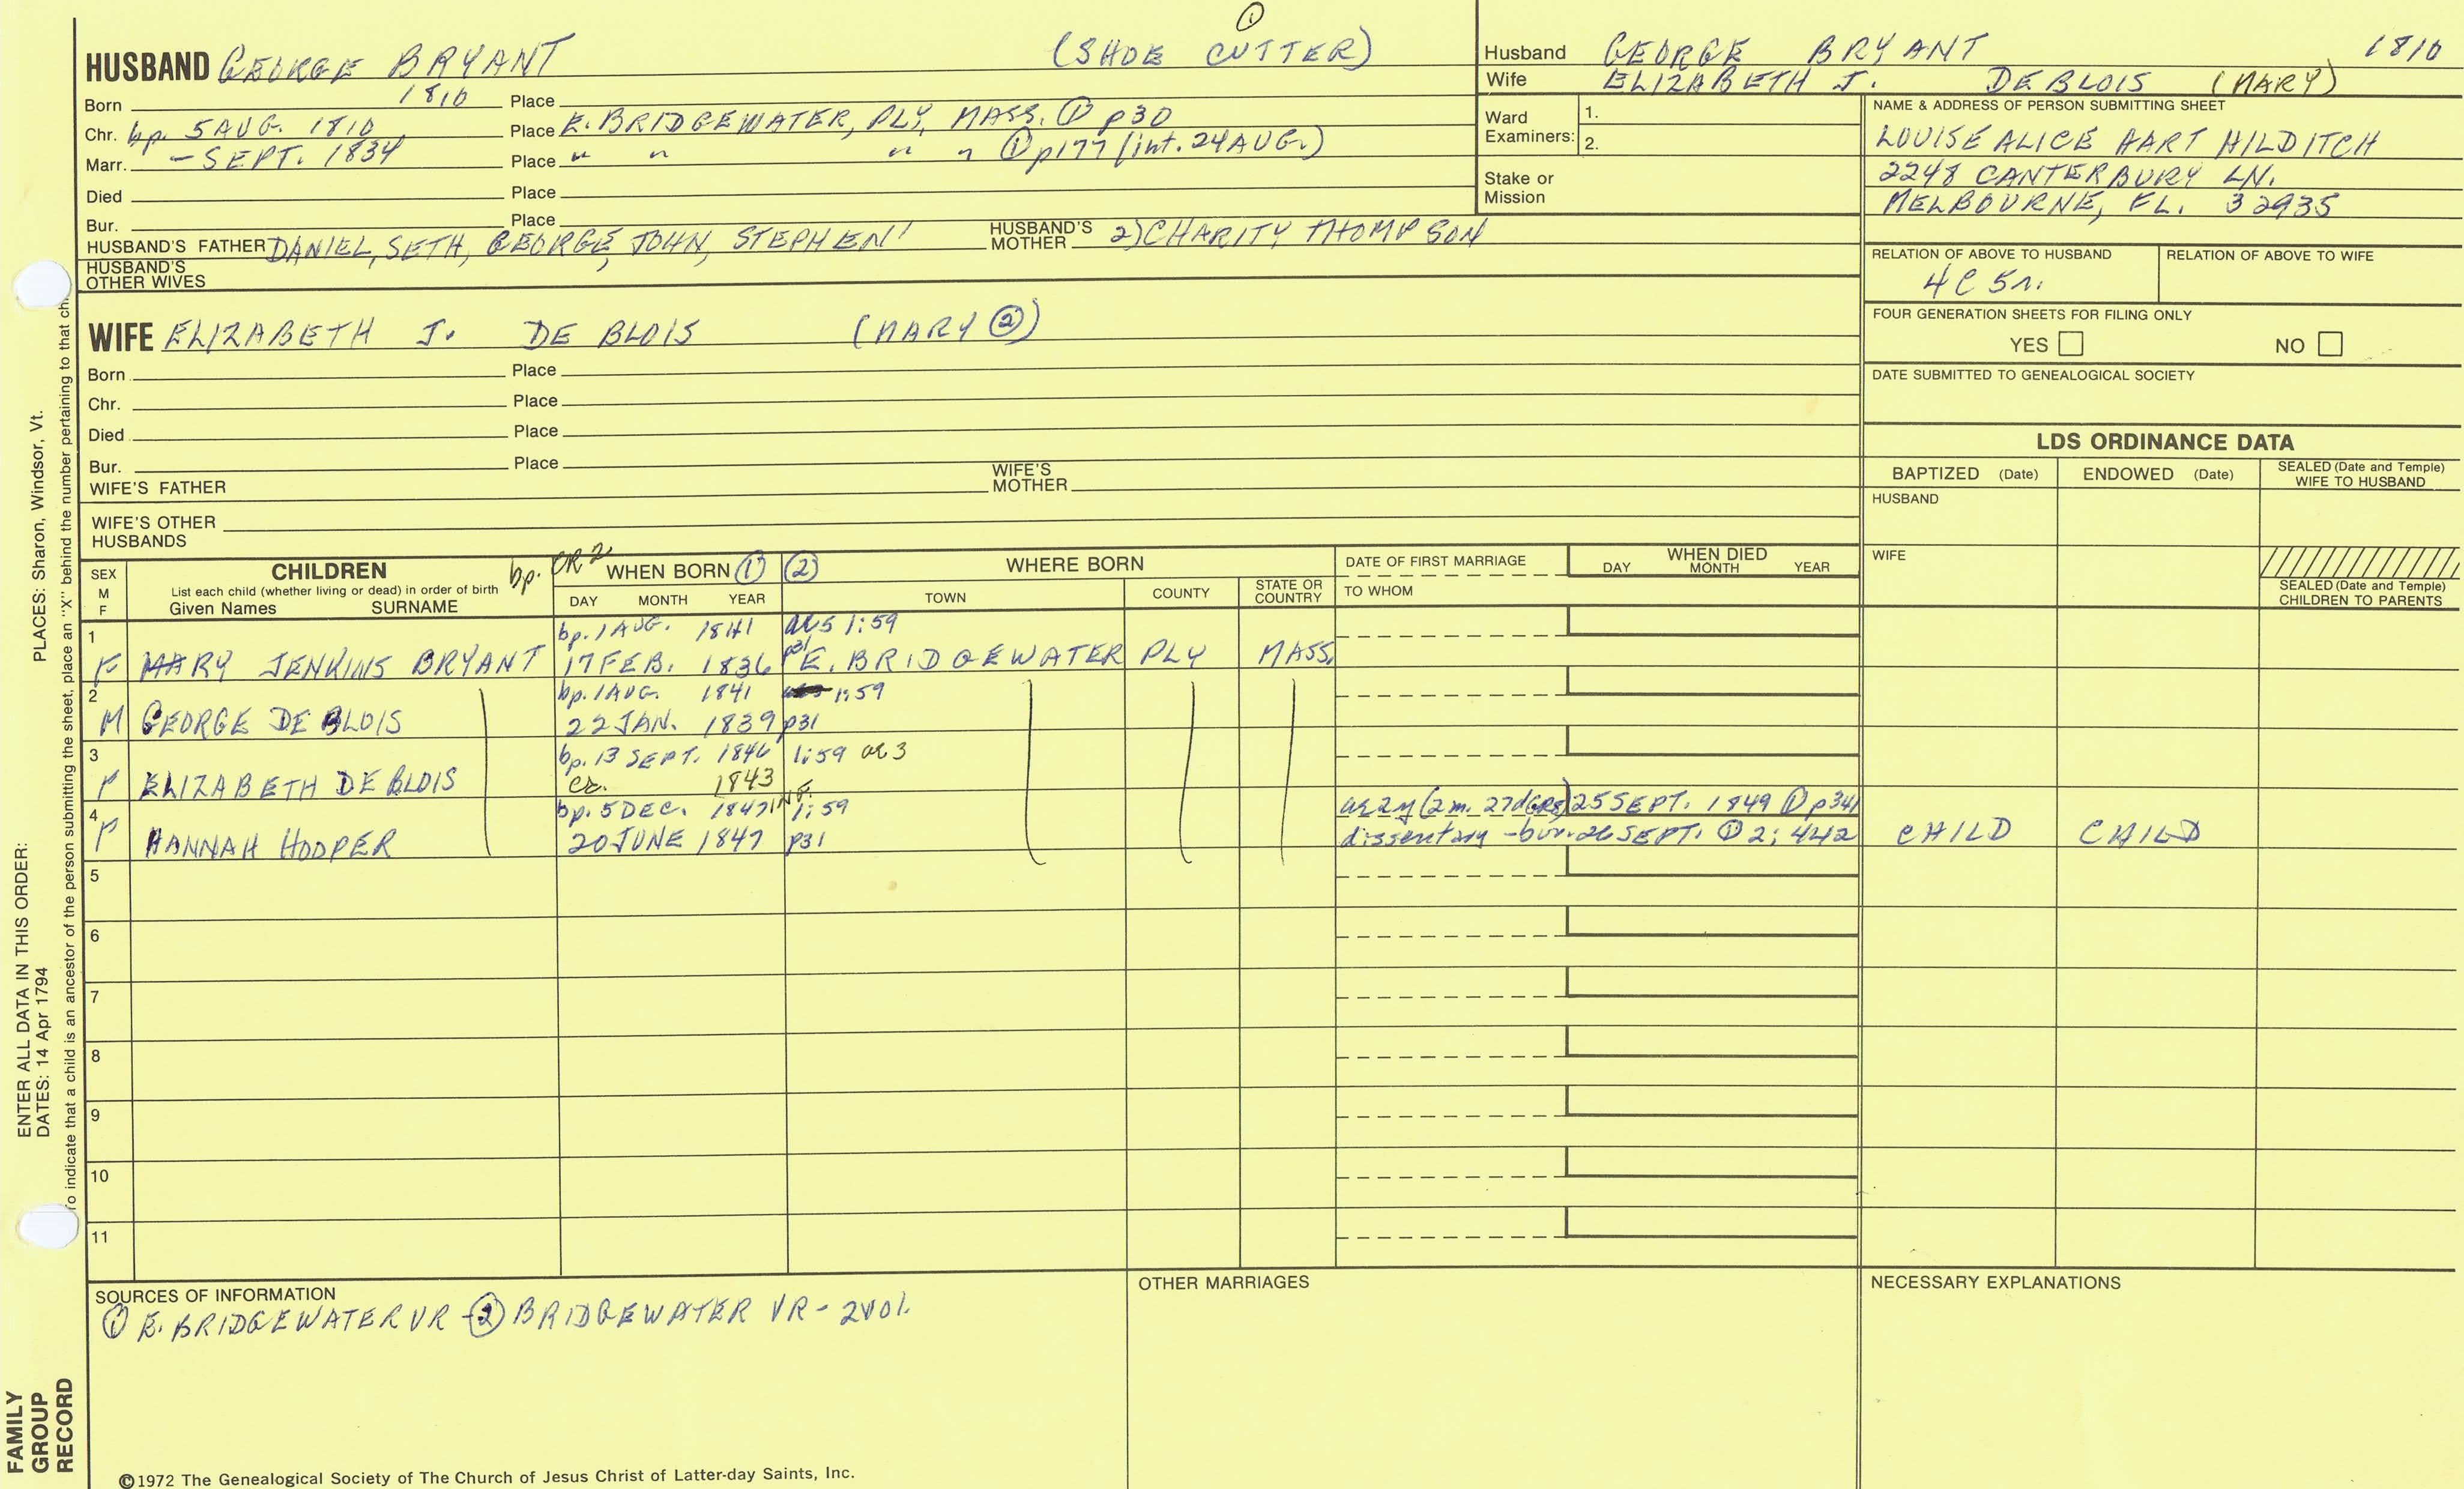 ①
HUSBAND GEORGE BRYANT (SHOE CUTTER)
Born 1810 Place
Chr. bp. 5 AUG. 1810 Place E. BRIDGEWATER, PLY, MASS. ① p30
Marr. - SEPT. 1834 Place " " " " ① p177 (int. 24 AUG.)
Died Place
Bur. Place
HUSBAND'S FATHER DANIEL, SETH, GEORGE, JOHN, STEPHEN' HUSBAND'S MOTHER 2) CHARITY THOMPSON
HUSBAND'S OTHER WIVES
Husband GEORGE BRYANT 1810
Wife ELIZABETH J. DE BLOIS (MARY)
Ward Examiners: 1.
2.
Stake or Mission
NAME & ADDRESS OF PERSON SUBMITTING SHEET
LOUISE ALICE HART HILDITCH
2248 CANTERBURY LN.
MELBOURNE, FL. 32935
RELATION OF ABOVE TO HUSBAND RELATION OF ABOVE TO WIFE
4C 5r.
FOUR GENERATION SHEETS FOR FILING ONLY
YES NO
DATE SUBMITTED TO GENEALOGICAL SOCIETY
WIFE ELIZABETH J. DE BLOIS (MARY ②)
Born Place
Chr. Place
Died Place
Bur. Place
WIFE'S FATHER WIFE'S MOTHER
WIFE'S OTHER HUSBANDS
LDS ORDINANCE DATA
BAPTIZED (Date) ENDOWED (Date) SEALED (Date and Temple) WIFE TO HUSBAND
HUSBAND
WIFE
SEALED (Date and Temple) CHILDREN TO PARENTS
SEX M F
CHILDREN
List each child (whether living or dead) in order of birth
Given Names SURNAME
bp. CR 2
WHEN BORN ① ②
DAY MONTH YEAR
WHERE BORN
TOWN COUNTY STATE OR COUNTRY
DATE OF FIRST MARRIAGE
TO WHOM
WHEN DIED
DAY MONTH YEAR
1 bp. 1 AUG. 1841 1:59
F MARY JENKINS BRYANT 17 FEB. 1836 p31 E. BRIDGEWATER PLY MASS.
2 bp. 1 AUG. 1841 1:59
M GEORGE DE BLOIS 22 JAN. 1839 p31
3 bp. 13 SEPT. 1846 1:59
F ELIZABETH DE BLOIS ca. 1843
4 bp. 5 DEC. 1847 INF. 1:59 25 SEPT. 1849 ① p341
F HANNAH HOOPER 20 JUNE 1847 p31 dissentary - bur. 26 SEPT. ② 2: 442 CHILD CHILD
5
6
7
8
9
10
11
SOURCES OF INFORMATION
① E. BRIDGEWATER VR - ② BRIDGEWATER VR - 2 vol.
OTHER MARRIAGES
NECESSARY EXPLANATIONS
©1972 The Genealogical Society of The Church of Jesus Christ of Latter-day Saints, Inc.
FAMILY GROUP RECORD
ENTER ALL DATA IN THIS ORDER:
DATES: 14 Apr 1794
PLACES: Sharon, Windsor, Vt.
To indicate that a child is an ancestor of the person submitting the sheet, place an "X" behind the number pertaining to that ch